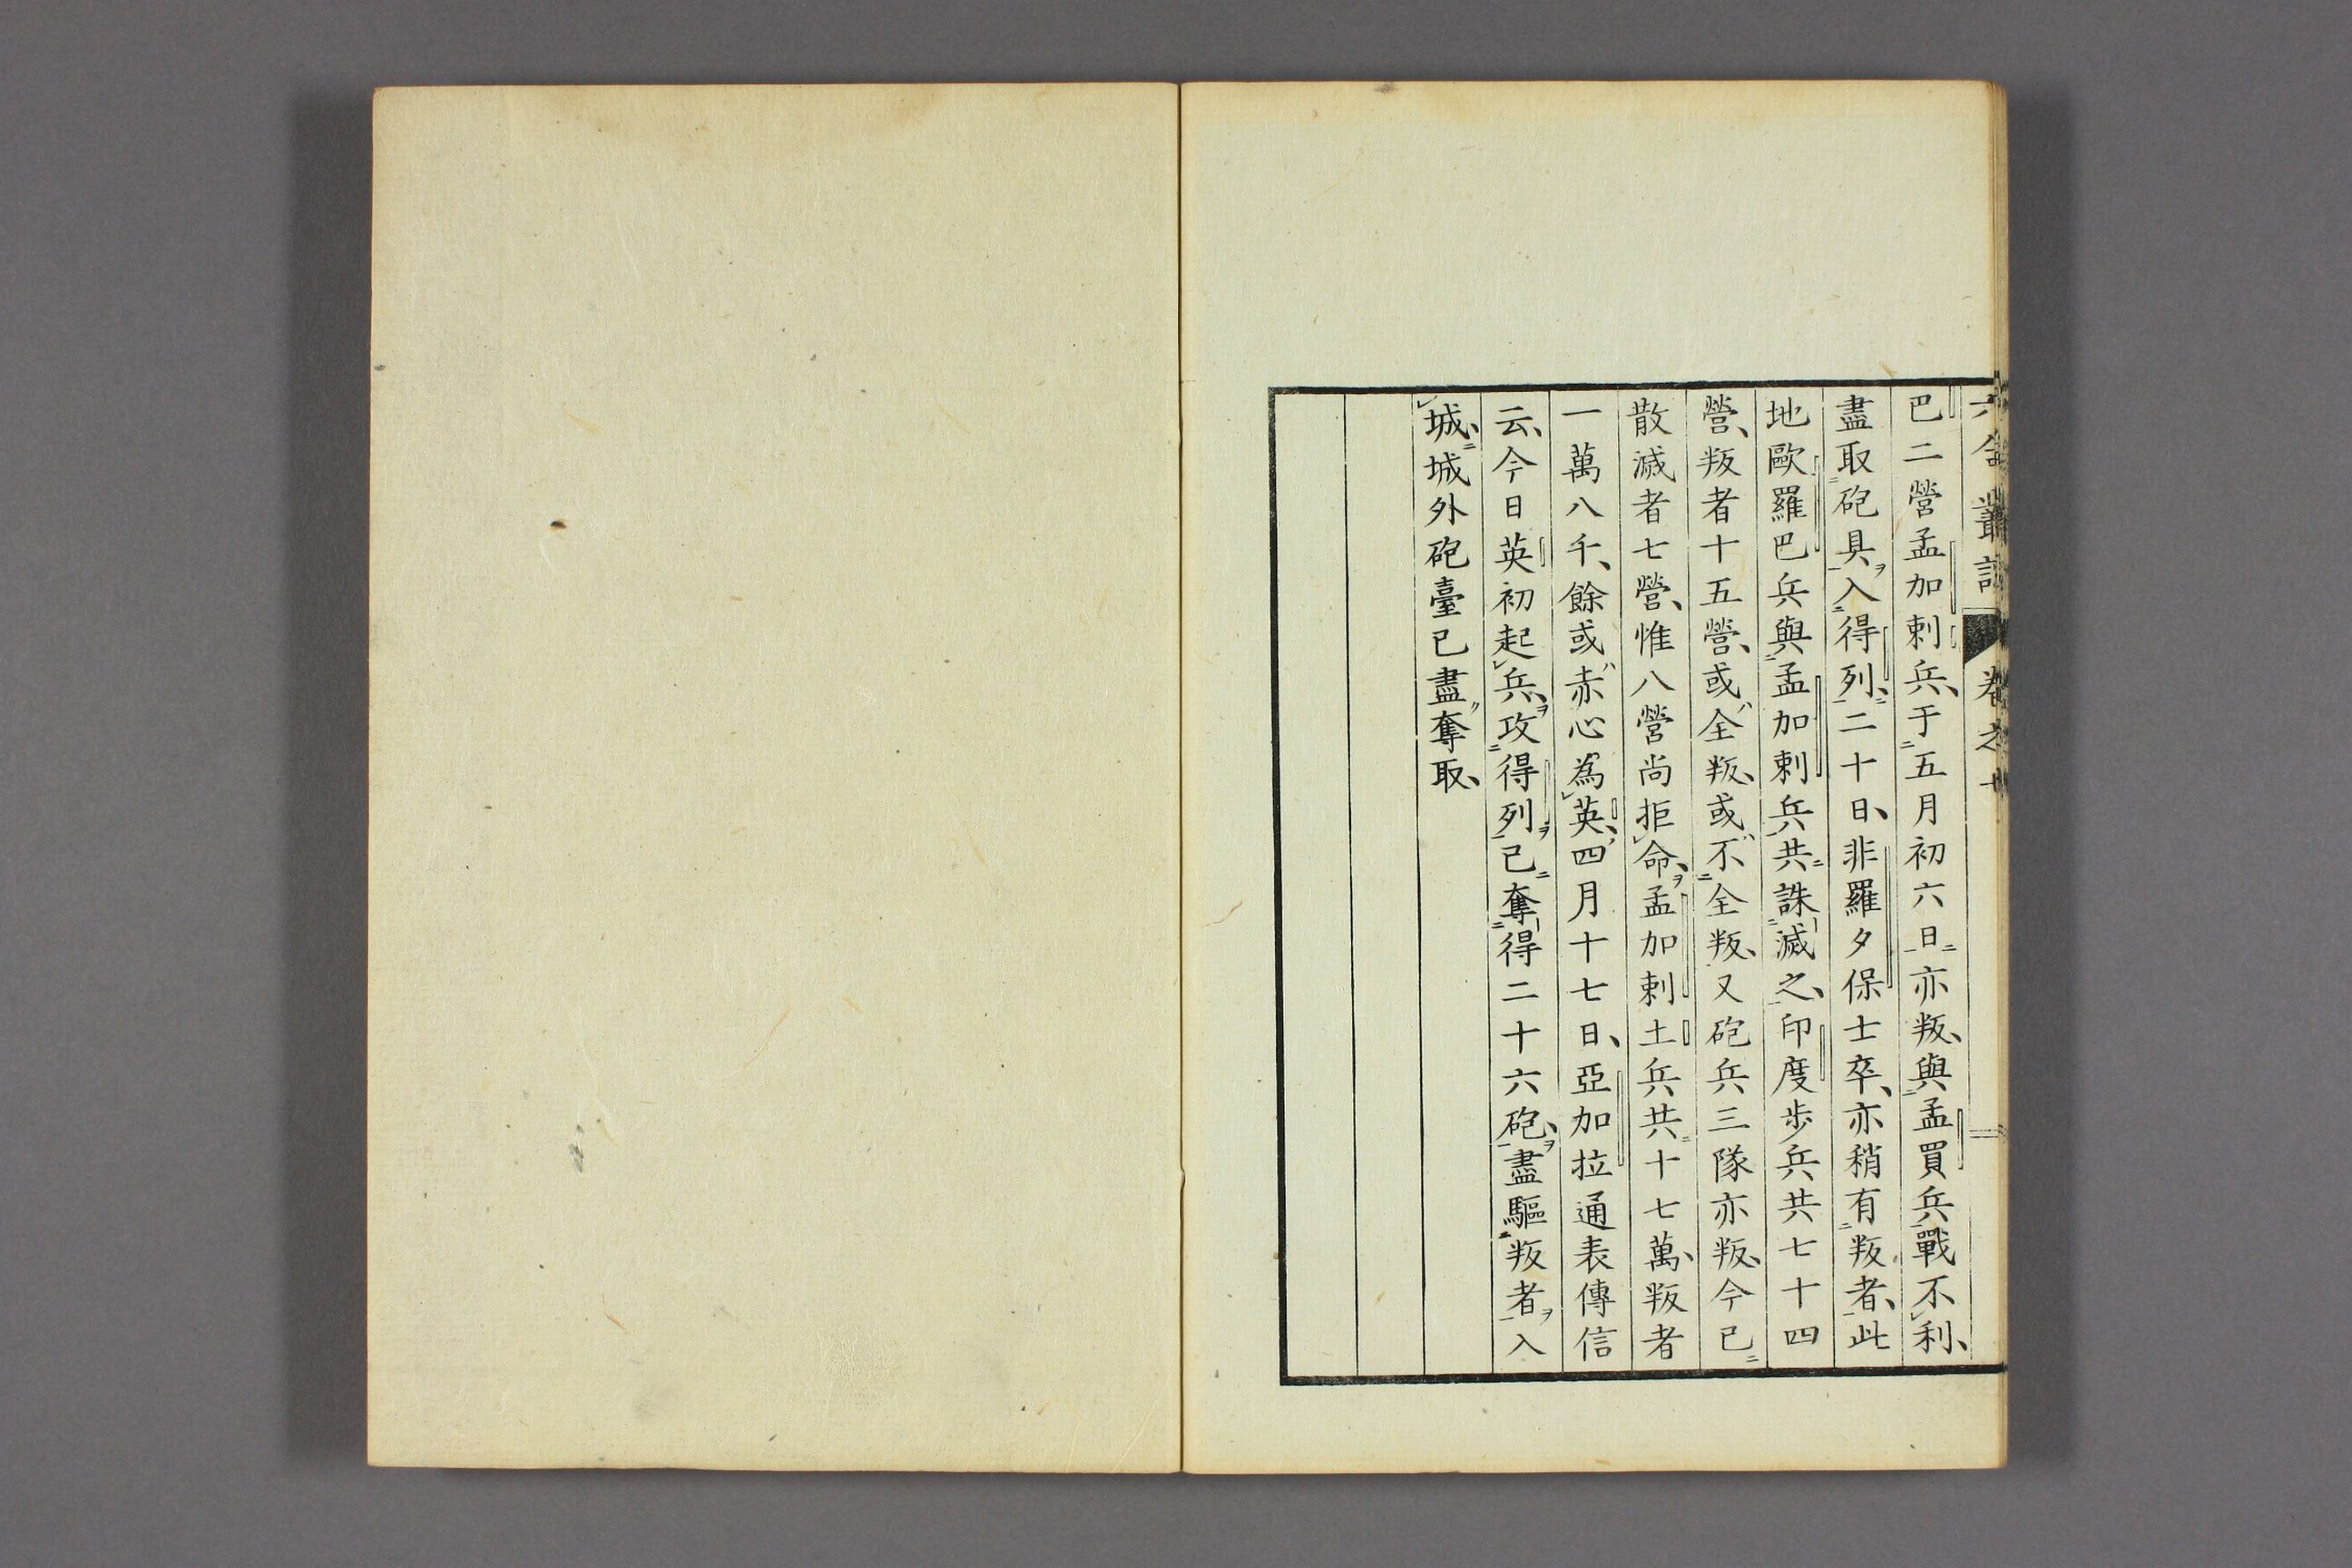 六合叢談 卷之十
巴二營孟加剌兵、于五月初六日亦叛、與孟買兵戰不利、
盡取砲具、入得列、二十日、非羅夕保士卒、亦稍有叛者、此
地歐羅巴兵與孟加剌兵共誅滅之、印度步兵共七十四
營、叛者十五營、或全叛、或不全叛、又砲兵三隊亦叛、今已
散滅者七營、惟八營尚拒命、孟加剌土兵共十七萬、叛者
一萬八千、餘或赤心為英、四月十七日、亞加拉通表傳信
云、今日英初起兵、攻得列已奪得二十六砲、盡驅叛者入
城、城外砲臺已盡奪取、